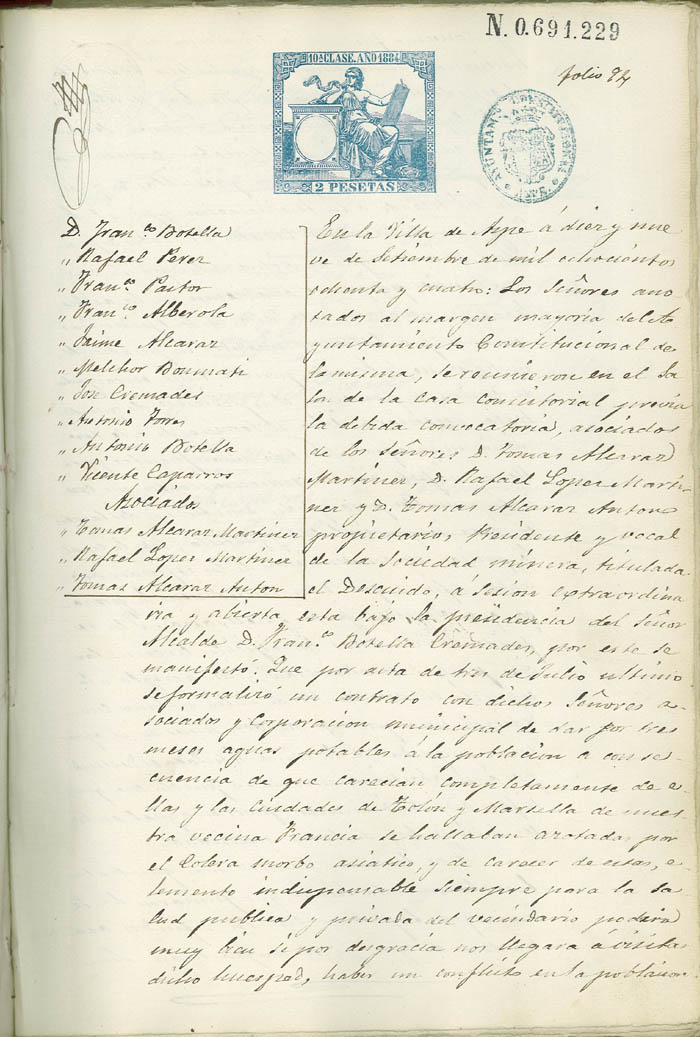 N. 0.691.229
folio 94
10ª CLASE. AÑO 1884
2 PESETAS
AYUNTAMTO CONSTITUCIONAL
ASPE
D. Franco Botella
" Rafael Perez
" Franco Pastor
" Franco Alberola
" Jaime Alcaraz
" Melchor Bonmati
" Jose Cremades
" Antonio Torres
" Antonio Botella
" Vicente Caparros
Asociados
" Tomas Alcaraz Martinez
" Rafael Lopez Martinez
" Tomas Alcaraz Anton
En la Villa de Aspe á diez y nue
ve de Setiembre de mil ochocientos
ochenta y cuatro: Los Señores ano
tados al margen mayoria del A
yuntamiento Constitucional de
la misma, se reunieron en el Sa
lon de la Casa Consistorial previa
la debida convocatoria, asociados
de los Señores D. Tomas Alcaraz
Martinez, D. Rafael Lopez Marti
nez y D. Tomas Alcaraz Anton
propietarios, Presidente y vocal
de la Sociedad minera, titulada
el Descuido, á sesion extraordina
ria y abierta esta bajo la presidencia del Señor
Alcalde D. Franco Botella Cremades, por este se
manifestó: Que por acta de tres de Julio ultimo
se formalizó un contrato con dichos Señores a-
sociados y Corporacion municipal de dar por tres
meses aguas potables á la poblacion a conse-
cuencia de que carecian completamente de e-
llas y las Ciudades de Tolón y Marsella de nues
tra vecina Francia se hallaban azotadas por
el Colera morbo asiatico, y de carecer de estas, e-
lemento indispensable siempre para la sa
lud publica y privada del vecindario podria
muy bien si por desgracia nos llegara á visitar
dicho huesped, haber un conflicto en la poblacion